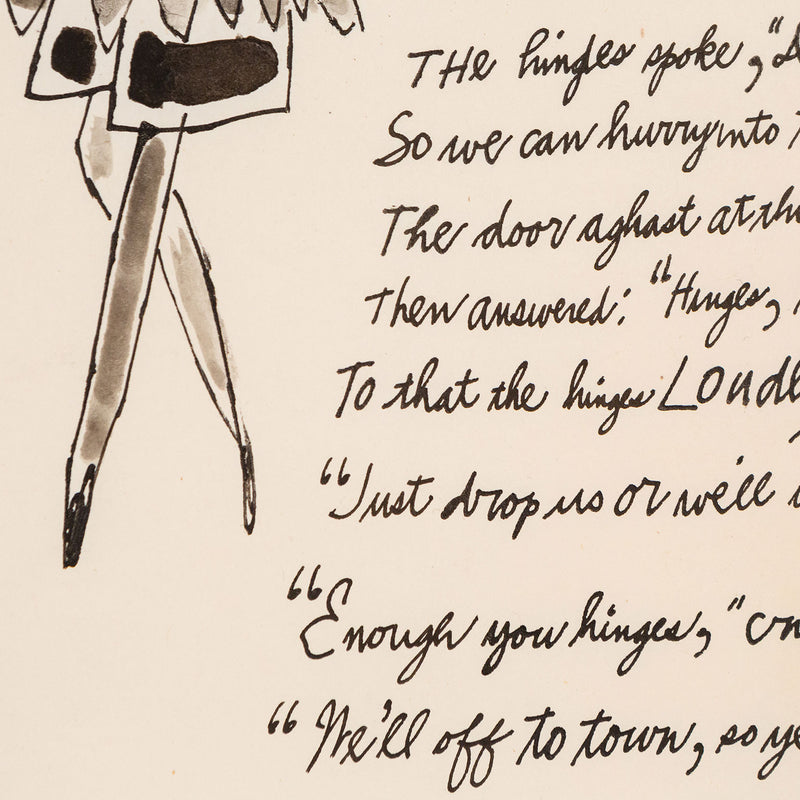 THe hinges spoke,"
So we can hurry into
The door aghast at
Then answered: "Hinges,
To that the hinges Loudl
"Just drop us or we'll
"Enough you hinges," cri
"We'll off to town, so ye